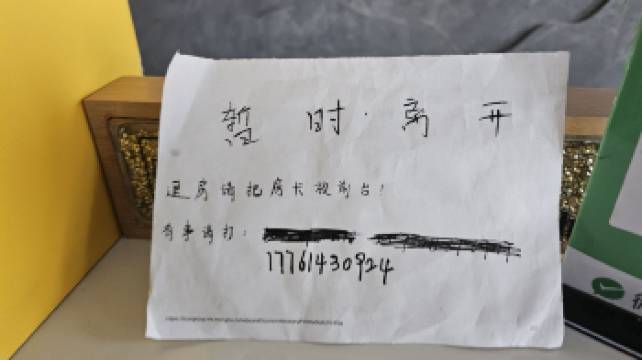 暂时离开
退房请把房卡放前台!
有事请打:
17761430924